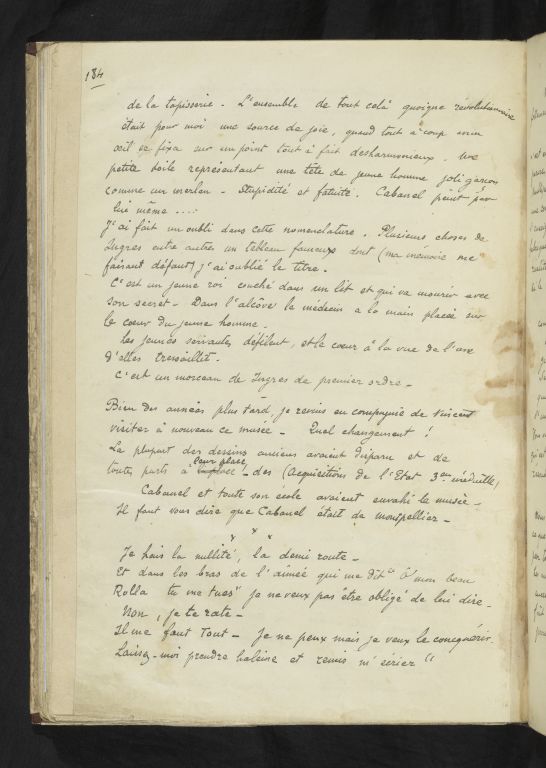 184
de la tapisserie. L'ensemble de tout celà quoique révolutionnaire
était pour moi une source de joie, quand tout à coup mon
œil se fixa sur un point tout à fait desharmonieux. Une
petite toile représentant une tête de jeune homme joli garçon
comme un merlan. Stupidité et fatuité. Cabanel peint par
lui même ....
J'ai fait un oubli dans cette nomenclature. Plusieurs choses de
Ingres entre autres un tableau fameux dont (ma mémoire me
faisant défaut) j'ai oublié le titre.
C'est un jeune roi couché dans un lit et qui va mourir avec
son secret. Dans l'alcôve le médecin a la main placée sur
le cœur du jeune homme.
Les jeunes servantes défilent, et le cœur à la vue de l'une
d'elles tressaillit.
C'est un morceau de Ingres de premier ordre.
Bien des années plus tard, je revins en compagnie de Vincent
visiter à nouveau ce musée. Quel changement !
La plupart des dessins anciens avaient disparu et de
toutes parts à leur place des (Acquisitions de l'Etat 3em médaille)
Cabanel et toute son école avaient envahi le musée.
Il faut vous dire que Cabanel était de Montpellier.
x x x
Je hais la nullité, la demi route.
Et dans les bras de l'aimée qui me dit "O mon beau
Rolla tu me tues" je ne veux pas être obligé de lui dire.
Non, je te rate.
Il me faut Tout. Je ne peux mais je veux le conquérir.
Laissez-moi prendre haleine et m'écrier "